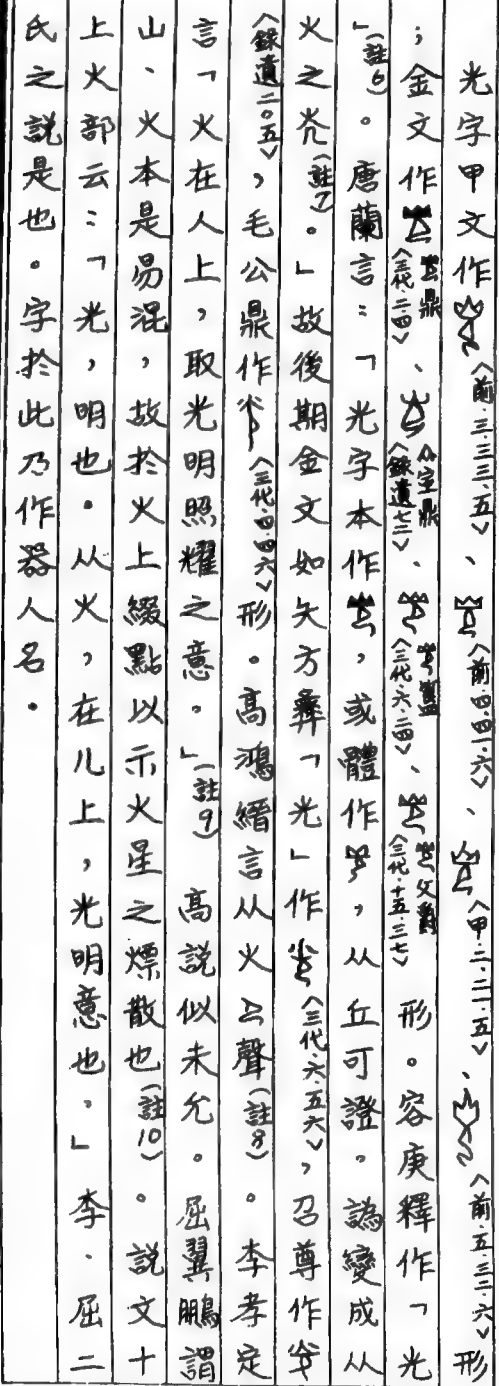 光字甲文作〈前.三.三三.五〉、〈前.四.四一.六〉、〈甲.二.二一.五〉、〈前.五.三二.六〉形
；金文作鼎〈三代.二.四〉、鼎〈錄遺七二〉、〈三代.六.二四〉、父爵〈三代.十五.三七〉形。容庚釋作「光
」(註6)。唐蘭言：「光字本作，或體作，从丘可證。譌變成从
火之灮(註7)。」故後期金文如矢方彝「光」作〈三代.六.五六〉，召尊作
〈錄遺二０五〉，毛公鼎作〈三代.四.四六〉形。高鴻縉言从火聲(註8)。李孝定
言「火在人上，取光明照耀之意。」(註9)高說似未允。屈翼鵬謂
山、火本是易混，故於火上綴點以示火星之熛散也(註10)。說文十
上火部云：「光，明也。从火，在儿上，光明意也。」李．屈二
氏之說是也。字於此乃作器人名。